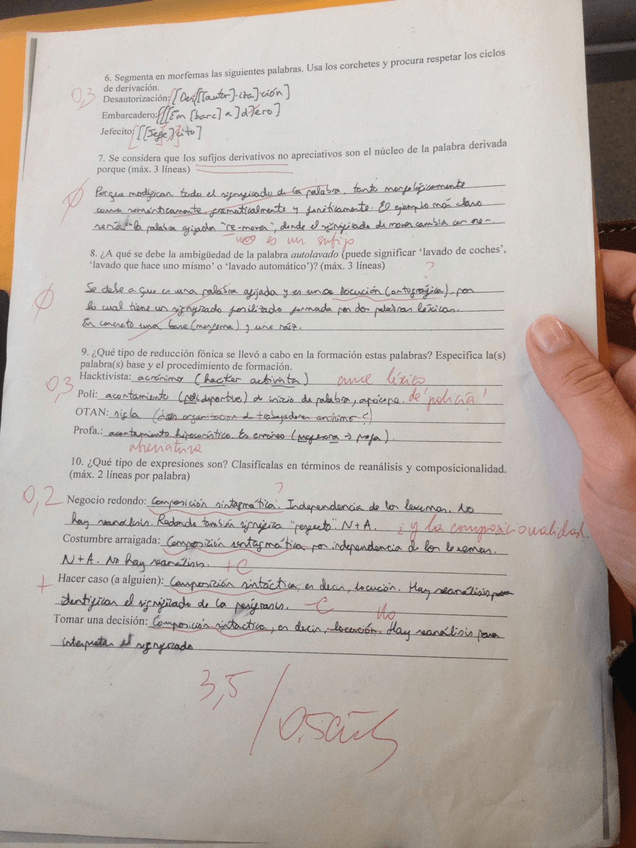 6. Segmenta en morfemas las siguientes palabras. Usa los corchetes y procura respetar los ciclos
de derivación.
0,3
Desautorización: [[Des[[autor]·iza]ción]
Embarcadero: [[[Em [barc] a] d]ero]
Jefecito: [[Jefe]cito]
7. Se considera que los sufijos derivativos no apreciativos son el núcleo de la palabra derivada
porque (máx. 3 líneas)
Porque modifican todo el significado de la palabra, tanto morfológicamente
como semánticamente, gramaticalmente y fonéticamente. El ejemplo más claro
sería la palabra afijada "re-mover", donde el significado de mover cambia con re-
no es un sufijo
8. ¿A qué se debe la ambigüedad de la palabra autolavado (puede significar 'lavado de coches',
'lavado que hace uno mismo' o 'lavado automático')? (máx. 3 líneas)
?
Se debe a que es una palabra afijada y es una locución (ortográfica), por
lo cual tiene un significado fosilizado formada por dos palabras léxicas.
En concreto una base (morfema) y una raíz.
9. ¿Qué tipo de reducción fónica se llevó a cabo en la formación estas palabras? Especifica la(s)
palabra(s) base y el procedimiento de formación.
Hacktivista: acrónimo (hacker activista) cruce léxico
0,3
Poli: acortamiento (polideportivo) de inicio de palabra, apócope. de 'policía'
OTAN: sigla (organitacion de trabajadores anónimo?)
Profa.: acortamiento hipocorístico. Es erróneo (profesora → profa).
abreviatura
10. ¿Qué tipo de expresiones son? Clasifícalas en términos de reanálisis y composicionalidad.
(máx. 2 líneas por palabra)
?
0,2
Negocio redondo: Composición sintagmática. Independencia de los lexemas. No
hay reanálisis. Redondo también significa "perfecto". N+A. ¿y la composicionalidad
Costumbre arraigada: Composición sintagmática, por independencia de los lexemas.
N+A. No hay reanálisis. +C
+
Hacer caso (a alguien): Composición sintáctica, es decir, locución. Hay reanálisis para
identificar el significado de la perífrasis. -C
No
Tomar una decisión: Composición sintáctica, es decir, locución. Hay reanálisis para
interpretar el significado
3,5